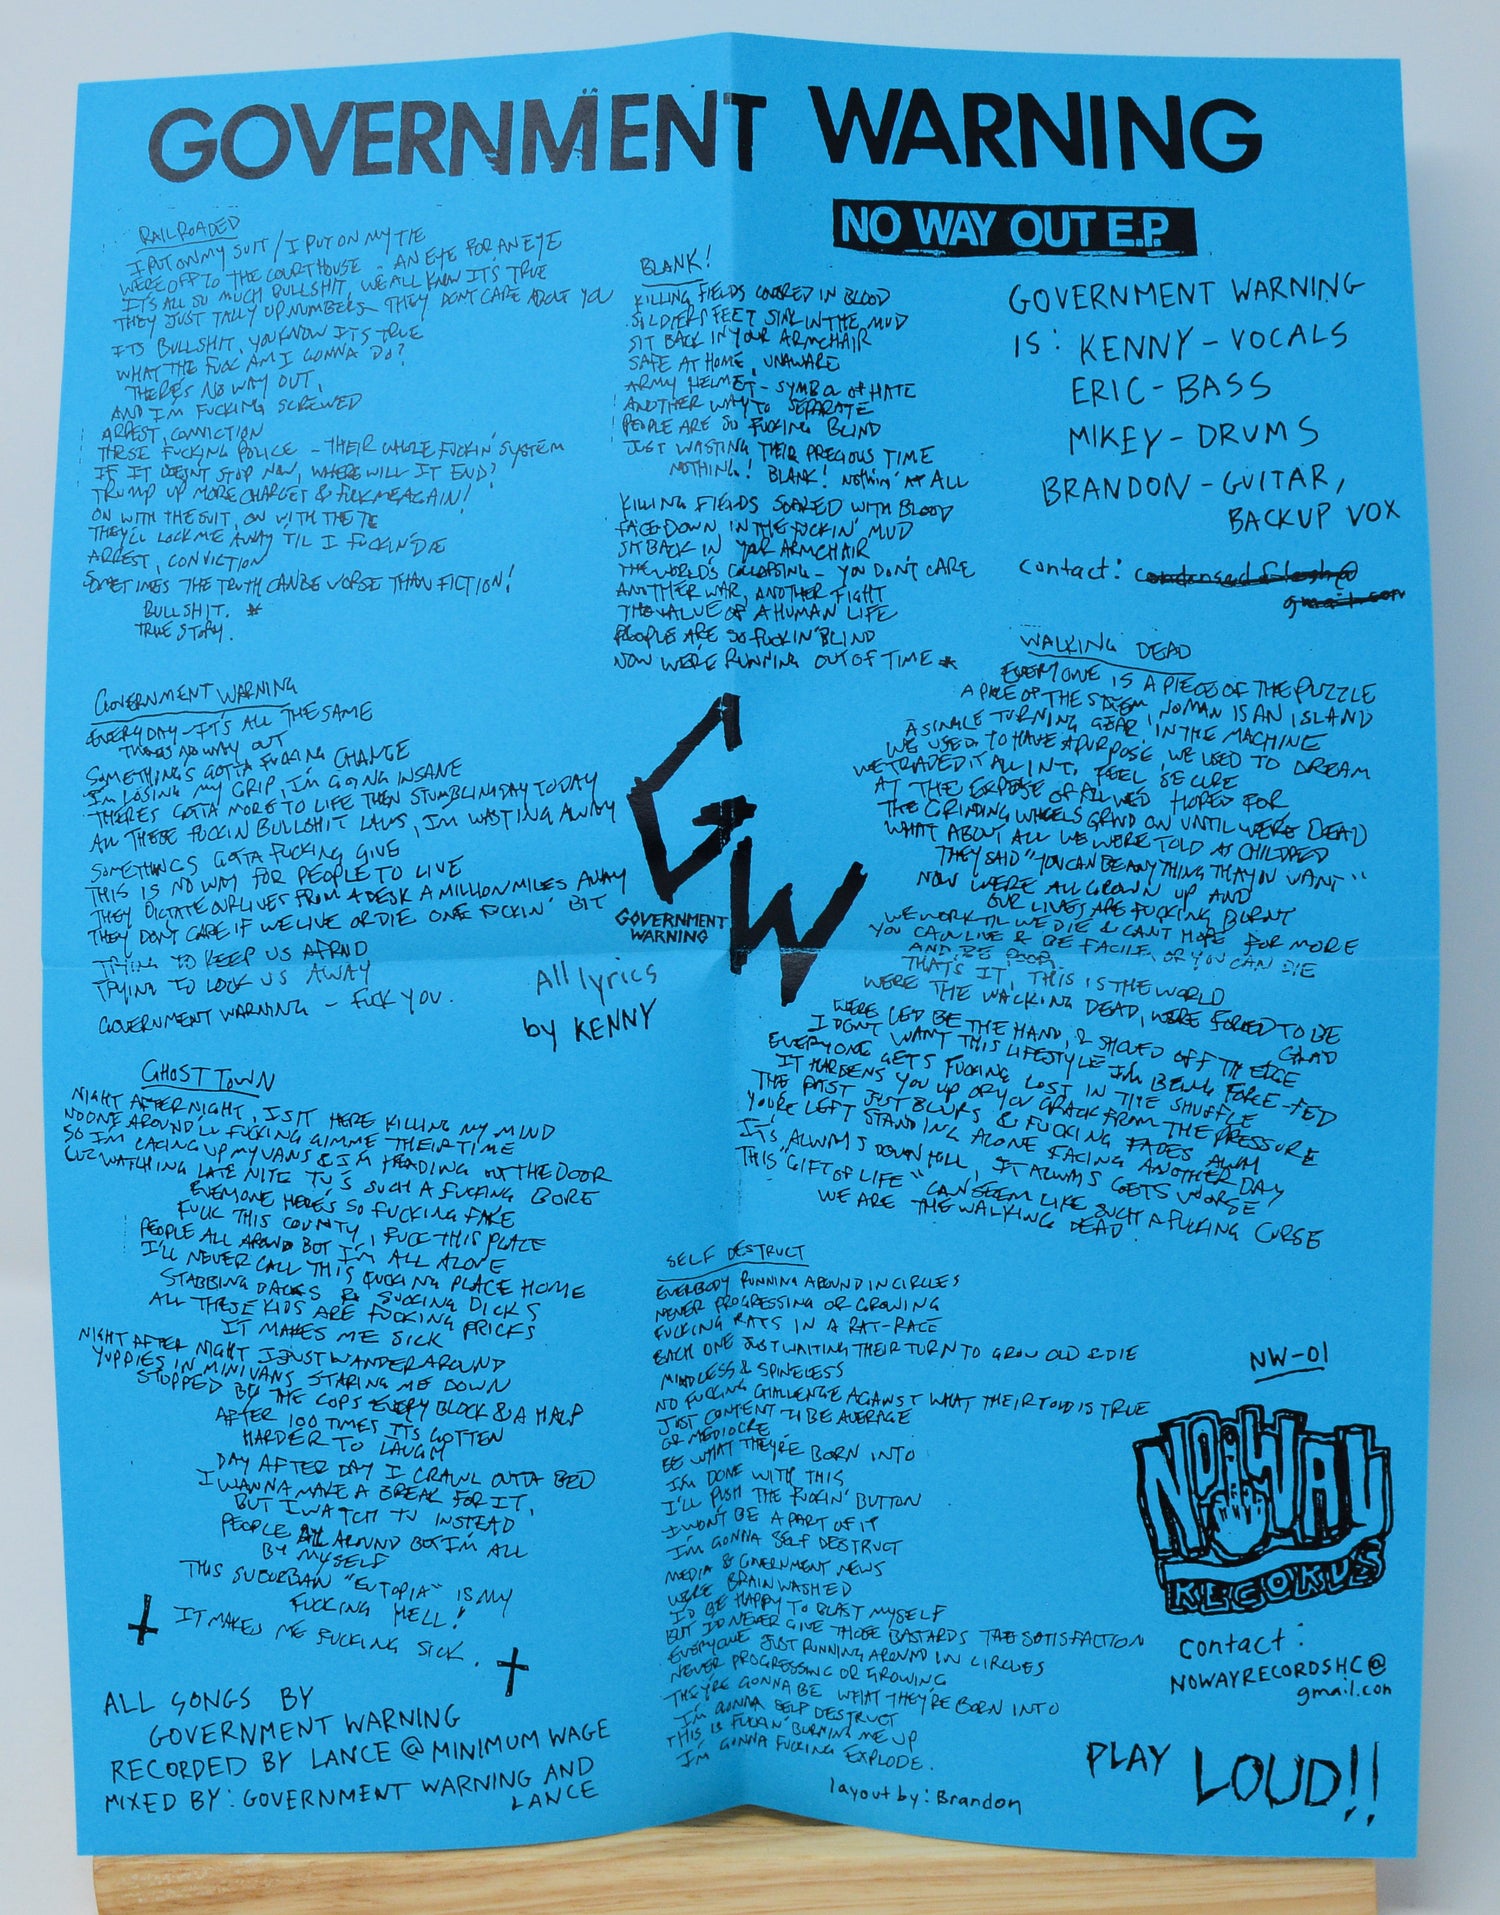 GOVERNMENT WARNING
NO WAY OUT E.P.
RAILROADED
I PUT ON MY SUIT / I PUT ON MY TIE
WERE OFF TO THE COURTHOUSE - AN EYE FOR AN EYE
IT'S ALL SO MUCH BULLSHIT, WE ALL KNOW IT'S TRUE
THEY JUST TALLY UP NUMBERS THEY DONT CARE ABOUT YOU
ITS BULLSHIT, YOU KNOW IT'S TRUE
WHAT THE FUCK AM I GONNA DO?
THERE'S NO WAY OUT,
AND I'M FUCKING SCREWED
ARREST, CONVICTION
THESE FUCKING POLICE - THEIR WHOLE FUCKIN' SYSTEM
IF IT DOESNT STOP NOW, WHERE WILL IT END?
TRUMP UP MORE CHARGES & FUCK ME AGAIN!
ON WITH THE SUIT, ON WITH THE TIE
THEY'LL LOCK ME AWAY TIL I FUCKIN' DIE
ARREST, CONVICTION
SOMETIMES THE TRUTH CAN BE WORSE THAN FICTION!
BULLSHIT. *
TRUE STORY.
BLANK!
KILLING FIELDS COVERED IN BLOOD
SOLDIERS FEET SINK IN THE MUD
SIT BACK IN YOUR ARMCHAIR
SAFE AT HOME, UNAWARE
ARMY HELMET - SYMBOL OF HATE
ANOTHER WAY TO SEPARATE
PEOPLE ARE SO FUCKING BLIND
JUST WASTING THEIR PRECIOUS TIME
NOTHING! BLANK! NOTHIN' AT ALL
KILLING FIELDS SOAKED WITH BLOOD
FACE DOWN IN THE FUCKIN' MUD
SIT BACK IN YOUR ARMCHAIR
THE WORLD'S COLLAPSING - YOU DON'T CARE
ANOTHER WAR, ANOTHER FIGHT
THE VALUE OF A HUMAN LIFE
PEOPLE ARE SO FUCKIN' BLIND
NOW WE'RE RUNNING OUT OF TIME *
GOVERNMENT WARNING
IS: KENNY - VOCALS
ERIC - BASS
MIKEY - DRUMS
BRANDON - GUITAR,
BACKUP VOX
contact: condensedflesh@
gmail.com
GOVERNMENT WARNING
EVERYDAY - IT'S ALL THE SAME
THERES NO WAY OUT
SOMETHING'S GOTTA FUCKING CHANGE
I'M LOSING MY GRIP, I'M GOING INSANE
THERES GOTTA MORE TO LIFE THEN STUMBLIN DAY TO DAY
ALL THESE FUCKIN BULLSHIT LAWS, I'M WASTING AWAY
SOMETHINGS GOTTA FUCKING GIVE
THIS IS NO WAY FOR PEOPLE TO LIVE
THEY DICTATE OUR LIVES FROM A DESK A MILLION MILES AWAY
THEY DON'T CARE IF WE LIVE OR DIE ONE FUCKIN' BIT
TRYING TO KEEP US AFRAID
TRYING TO LOCK US AWAY
GOVERNMENT WARNING - FUCK YOU.
GW
GOVERNMENT
WARNING
All lyrics
by KENNY
WALKING DEAD
EVERYONE IS A PIECE OF THE PUZZLE
A PIECE OF THE SYSTEM, NO MAN IS AN ISLAND
A SINGLE TURNING GEAR, IN THE MACHINE
WE USED TO HAVE A PURPOSE, WE USED TO DREAM
WE TRADED IT ALL IN TO FEEL SECURE
AT THE EXPENSE OF ALL WE'D HOPED FOR
THE GRINDING WHEELS GRIND ON UNTIL WE'RE DEAD
WHAT ABOUT ALL WE WERE TOLD AS CHILDRED
THEY SAID "YOU CAN BE ANYTHING THAT YOU WANT"
NOW WE'RE ALL GROWN UP AND
OUR LIVES ARE FUCKING BURNT
WE WORK TIL WE DIE & CANT HOPE FOR MORE
YOU CAN LIVE & BE FACILE, OR YOU CAN DIE
AND BE POOR
THAT'S IT, THIS IS THE WORLD
WE'RE THE WALKING DEAD, WE'RE FORCED TO BE
GLAD
WERE LED BE THE HAND, & SHOVED OFF TH EDGE
I DONT WANT THIS LIFESTYLE I'M BEING FORCE-FED
EVERYONE GETS FUCKING LOST IN THE SHUFFLE
IT HARDENS YOU UP OR YOU CRACK FROM THE PRESSURE
THE PAST JUST BLURS & FUCKING FADES AWAY
YOU'RE LEFT STANDING ALONE FACING ANOTHER DAY
IT'S ALWAYS DOWNHILL, IT ALWAYS GETS WORSE
THIS "GIFT OF LIFE" CAN SEEM LIKE SUCH A FUCKING CURSE
WE ARE THE WALKING DEAD.
GHOST TOWN
NIGHT AFTER NIGHT, I SIT HERE KILLING MY MIND
NO ONE AROUND'LL FUCKING GIMME THEIR TIME
SO I'M LACING UP MY VANS & I'M HEADING OUT THE DOOR
CUZ WATCHING LATE NITE TV'S SUCH A FUCKING BORE
EVERYONE HERE'S SO FUCKING FAKE
FUCK THIS COUNTY, FUCK THIS PLACE
PEOPLE ALL AROUND BUT I'M ALL ALONE
I'LL NEVER CALL THIS FUCKING PLACE HOME
STABBING BACKS & SUCKING DICKS
ALL THESE KIDS ARE FUCKING PRICKS
IT MAKES ME SICK
NIGHT AFTER NIGHT I JUST WANDER AROUND
YUPPIES IN MINIVANS STARING ME DOWN
STOPPED BY THE COPS EVERY BLOCK & A HALF
AFTER 100 TIMES ITS GOTTEN
HARDER TO LAUGH
DAY AFTER DAY I CRAWL OUTTA BED
I WANNA MAKE A BREAK FOR IT,
BUT I WATCH TV INSTEAD
PEOPLE ALL AROUND BUT I'M ALL
BY MYSELF
THIS SUBURBAN "EUTOPIA" IS MY
FUCKING HELL!
IT MAKES ME FUCKING SICK.
SELF DESTRUCT
EVERBODY RUNNING AROUND IN CIRCLES
NEVER PROGRESSING OR GROWING
FUCKING RATS IN A RAT-RACE
EACH ONE JUST WAITING THEIR TURN TO GROW OLD & DIE
MINDLESS & SPINELESS
NO FUCKING CHALLENGE AGAINST WHAT THEIR TOLD IS TRUE
JUST CONTENT TO BE AVERAGE
OR MEDIOCRE
BE WHAT THEY'RE BORN INTO
I'M DONE WITH THIS
I'LL PUSH THE FUCKIN' BUTTON
I WON'T BE A PART OF IT
I'M GONNA SELF DESTRUCT
MEDIA & GOVERNMENT NEWS
WE'RE BRAINWASHED
I'D BE HAPPY TO BLAST MYSELF
BUT I'D NEVER GIVE THOSE BASTARDS THE SATISFACTION
EVERYONE JUST RUNNING AROUND IN CIRCLES
NEVER PROGRESSING OR GROWING
THEY'RE GONNA BE WHAT THEY'RE BORN INTO
I'M GONNA SELF DESTRUCT
THIS IS FUCKIN' BURNING ME UP
I'M GONNA FUCKING EXPLODE.
NW-01
NO WAY
RECORDS
contact:
NOWAYRECORDSHC@
gmail.com
ALL SONGS BY
GOVERNMENT WARNING
RECORDED BY LANCE @ MINIMUM WAGE
MIXED BY: GOVERNMENT WARNING AND
LANCE
layout by: Brandon
PLAY LOUD!!